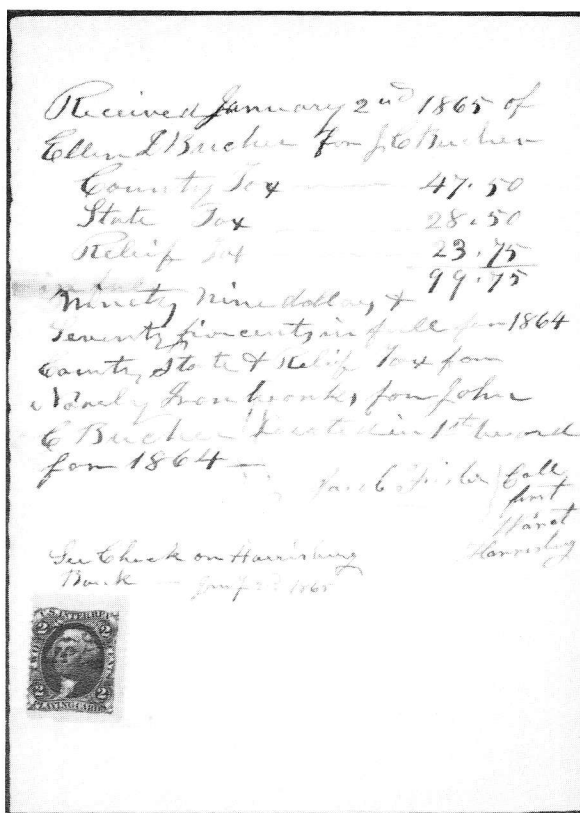 Received January 2nd 1865 of
Ellen I Bucher for J. C Bucher
County Tax 47.50
State Tax 28.50
Relief Tax 23.75
99.75
Ninety Nine dollars &
Seventy five cents in full for 1864
County State & Relief Tax for
Iron works, for John
C Bucher Located in 1st ward
for 1864
Jacob Coll
first
Ward
Harrisburg
See Check on Harrisburg
Bank Jany 2d 1865
U.S. INTER. REV.
TWO CENTS
2 2
2 2
PLAYING CARDS